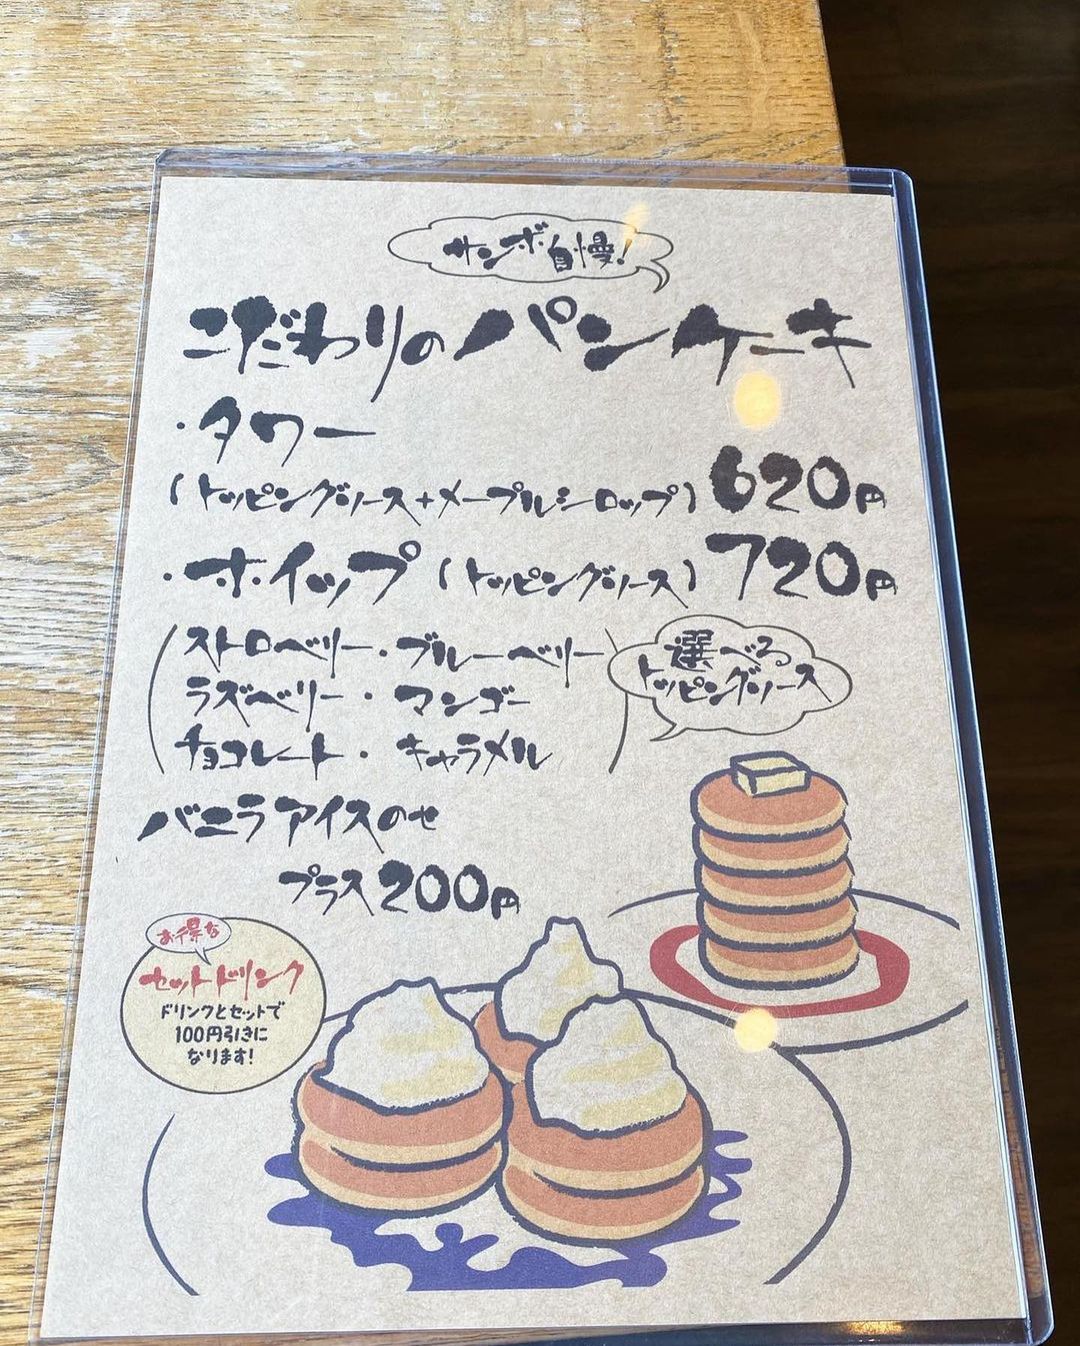 サンボ自慢!
こだわりのパンケーキ
・タワー
(トッピングソース+メープルシロップ) 620円
・ホイップ(トッピングソース) 720円
ストロベリー・ブルーベリー
ラズベリー・マンゴー
チョコレート・キャラメル
選べる
トッピングソース
バニラアイスのせ
プラス200円
お得な
セットドリンク
ドリンクとセットで
100円引きに
なります!